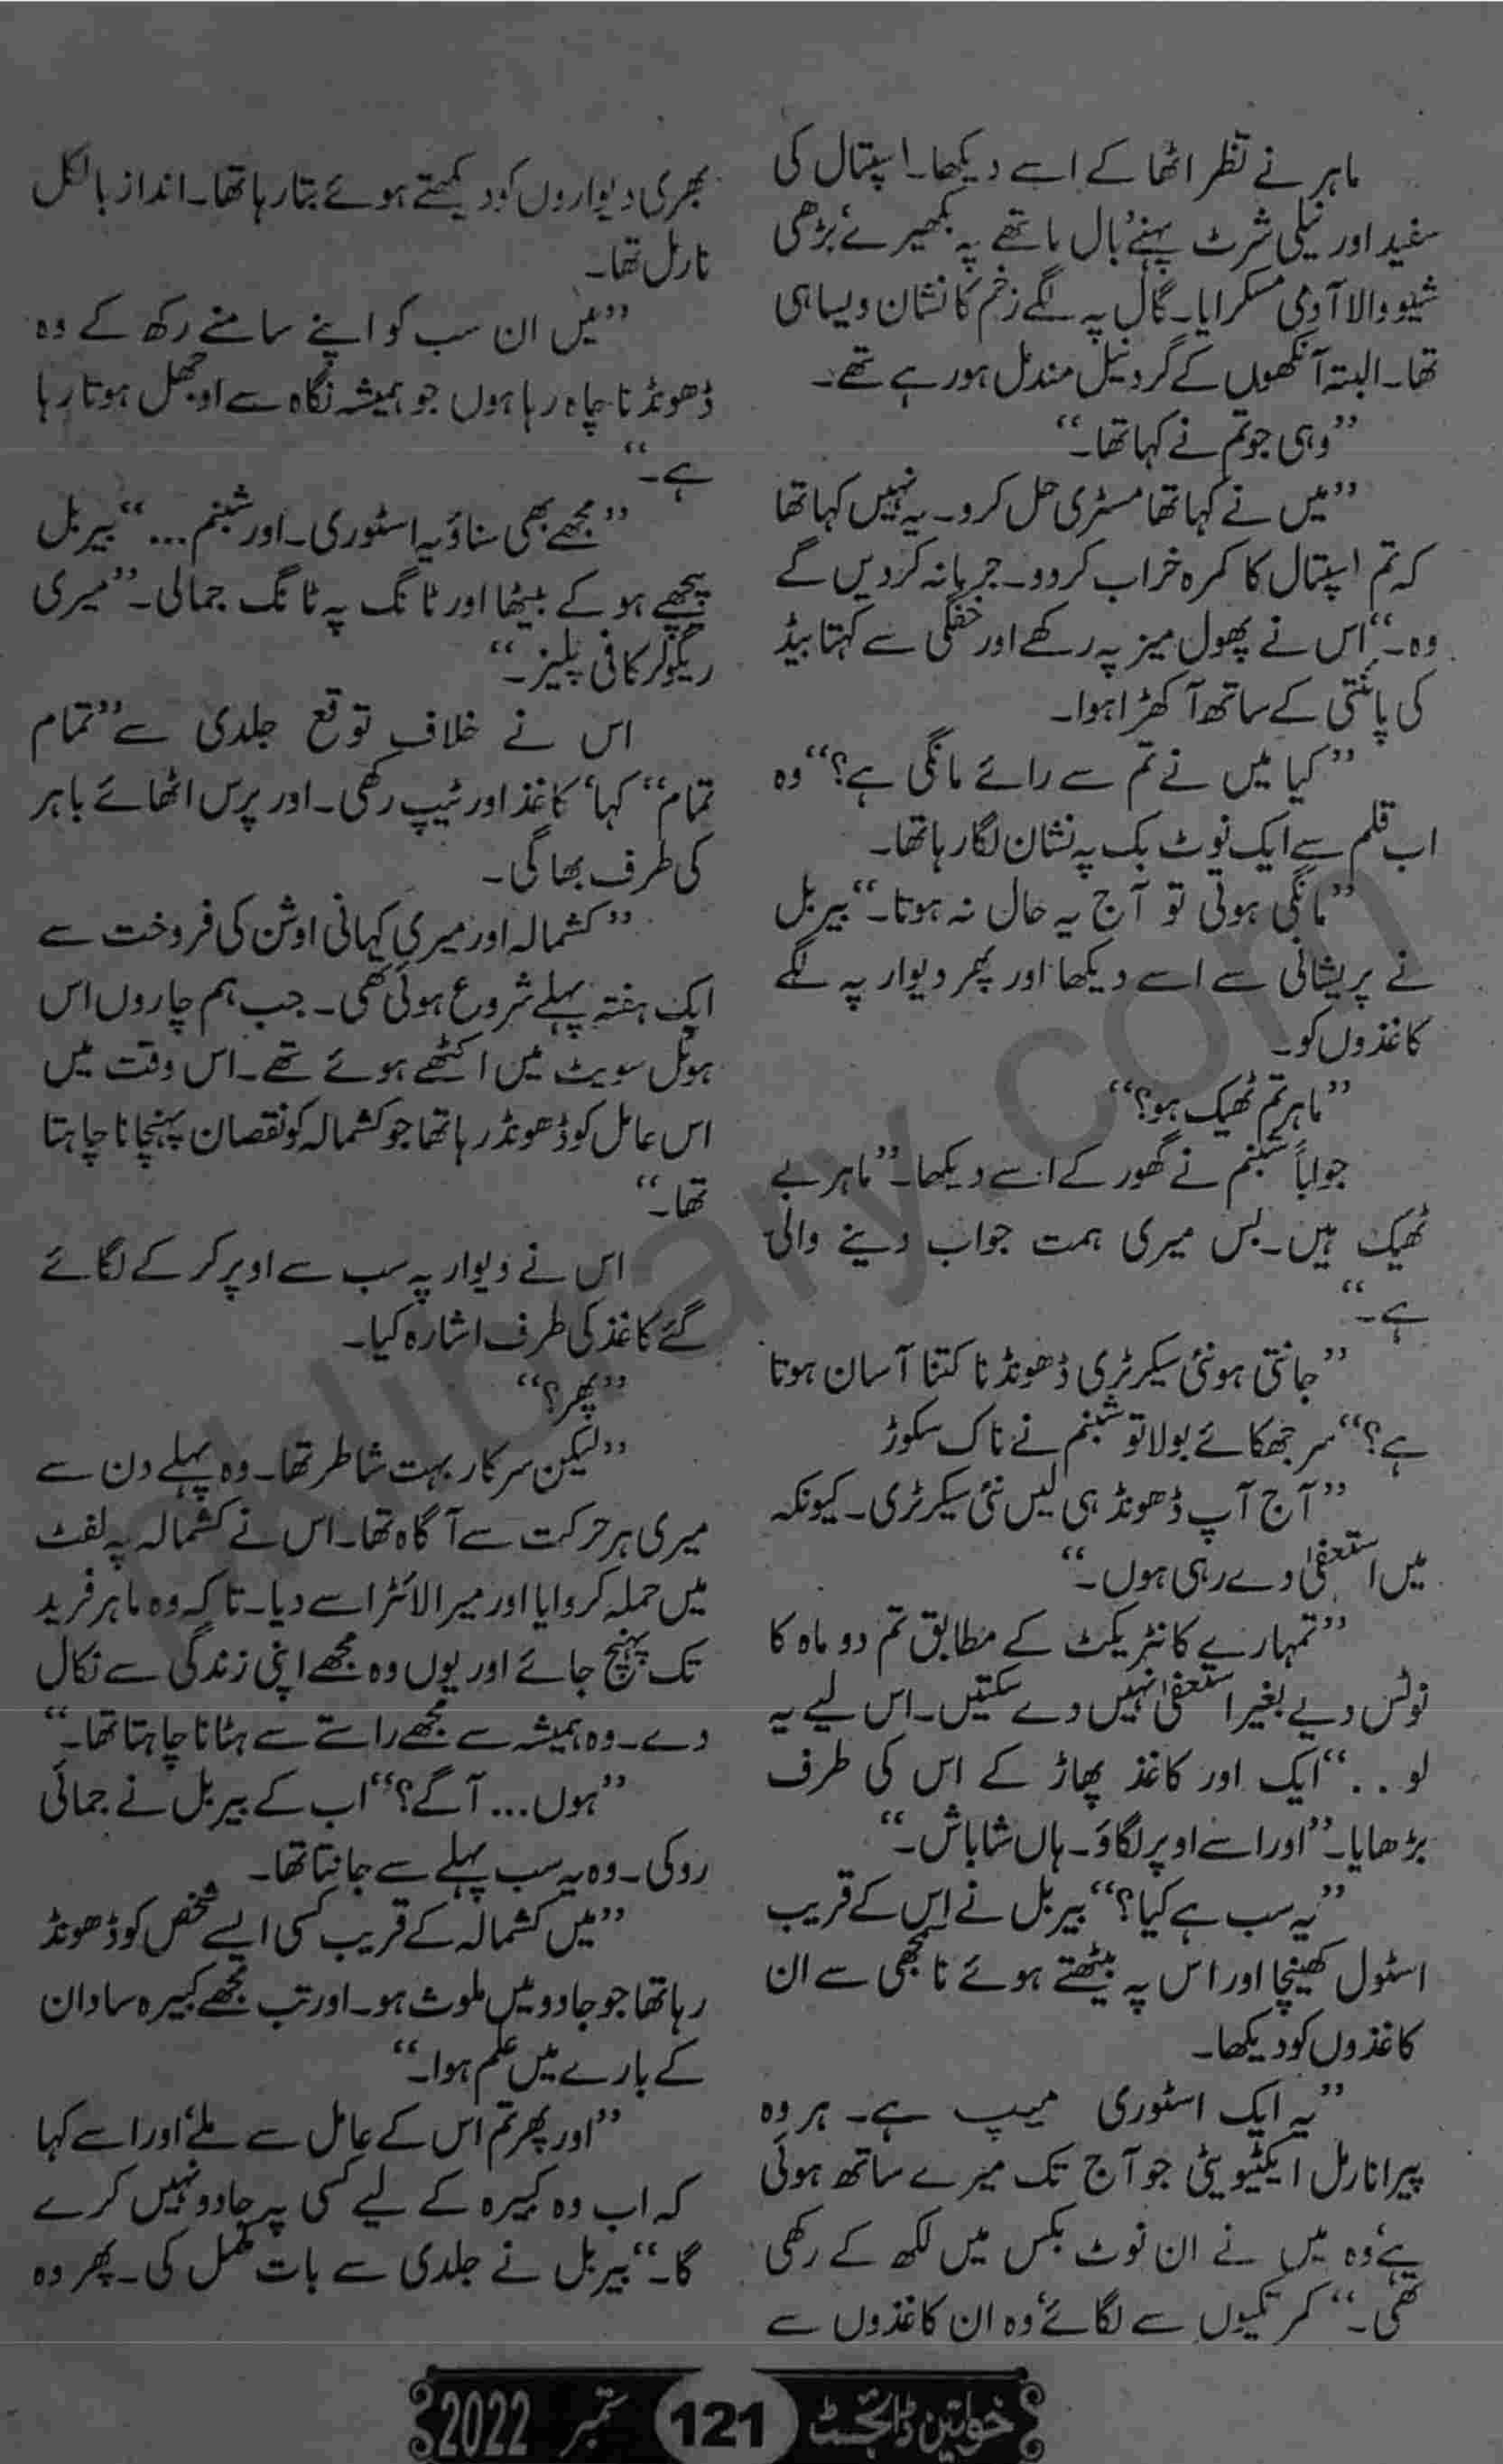 ماہر نے نظر اٹھا کے اسے دیکھا۔ اسپتال کی
سفید اور نیلی شرٹ پہنے، بال ماتھے پہ بکھیرے، بڑھی
شیو والا آدمی مسکرایا۔ گال پہ لگے زخم کا نشان ویسا ہی
تھا۔ البتہ آنکھوں کے گرد نیل مندمل ہو رہے تھے۔
”وہی جو تم نے کہا تھا۔“
”میں نے کہا تھا مسٹری حل کرو۔ یہ نہیں کہا تھا
کہ تم اسپتال کا کمرہ خراب کر دو۔ جرمانہ کر دیں گے
وہ۔“ اس نے پھول میز پہ رکھے اور خفگی سے کہتا بیڈ
کی پائنتی کے ساتھ آ کھڑا ہوا۔
”کیا میں نے تم سے رائے مانگی ہے؟“ وہ
اب قلم سے ایک نوٹ بک پہ نشان لگا رہا تھا۔
”مانگی ہوتی تو آج یہ حال نہ ہوتا۔“ بیربل
نے پریشانی سے اسے دیکھا اور پھر دیوار پہ لگے
کاغذوں کو۔
”ماہر تم ٹھیک ہو؟“
جواباً شبنم نے گھور کے اسے دیکھا۔ ”ماہر بے
ٹھیک ہیں۔ بس میری ہمت جواب دینے والی
ہے۔“
”جانتی ہو نئی سیکرٹری ڈھونڈنا کتنا آسان ہوتا
ہے؟“ سر جھکائے بولا تو شبنم نے ناک سکوڑ
”آج آپ ڈھونڈ ہی لیں نئی سیکرٹری۔ کیونکہ
میں استعفیٰ دے رہی ہوں۔“
”تمہارے کانٹریکٹ کے مطابق تم دو ماہ کا
نوٹس دیے بغیر استعفیٰ نہیں دے سکتیں۔ اس لیے یہ
لو...“ ایک اور کاغذ پھاڑ کے اس کی طرف
بڑھایا۔ ”اور اسے اوپر لگاؤ۔ ہاں شاباش۔“
”یہ سب ہے کیا؟“ بیربل نے اس کے قریب
اسٹول کھینچا اور اس پہ بیٹھتے ہوئے ناسمجھی سے ان
کاغذوں کو دیکھا۔
”یہ ایک اسٹوری میپ ہے۔ ہر وہ
پیرانارمل ایکٹیویٹی جو آج تک میرے ساتھ ہوئی
ہے، وہ میں نے ان نوٹ بکس میں لکھ کے رکھی
تھی۔“ کمر تکیوں سے لگائے، وہ ان کاغذوں سے
بھری دیواروں کو دیکھتے ہوئے بتا رہا تھا۔ انداز بالکل
نارمل تھا۔
”میں ان سب کو اپنے سامنے رکھ کے وہ
ڈھونڈنا چاہ رہا ہوں جو ہمیشہ نگاہ سے اوجھل ہوتا رہا
ہے۔“
”مجھے بھی سناؤ یہ اسٹوری۔ اور شبنم...“ بیربل
پیچھے ہو کے بیٹھا اور ٹانگ پہ ٹانگ جمالی۔ ”میری
ریگولر کافی پلیز۔“
اس نے خلاف توقع جلدی سے ”تمام
تمام“ کہا، کاغذ اور ٹیپ رکھی۔ اور پرس اٹھائے باہر
کی طرف بھاگی۔
”کشمالہ اور میری کہانی اوشن کی فروخت سے
ایک ہفتہ پہلے شروع ہوئی تھی۔ جب ہم چاروں اس
ہوٹل سویٹ میں اکٹھے ہوئے تھے۔ اس وقت میں
اس عامل کو ڈھونڈ رہا تھا جو کشمالہ کو نقصان پہنچانا چاہتا
تھا۔“
اس نے دیوار پہ سب سے اوپر کر کے لگائے
گئے کاغذ کی طرف اشارہ کیا۔
”پھر؟“
”لیکن سرکار بہت شاطر تھا۔ وہ پہلے دن سے
میری ہر حرکت سے آگاہ تھا۔ اس نے کشمالہ پہ لفٹ
میں حملہ کروایا اور میرا لائٹر اسے دیا۔ تاکہ وہ ماہر فرید
تک پہنچ جائے اور یوں وہ مجھے اپنی زندگی سے نکال
دے۔ وہ ہمیشہ سے مجھے راستے سے ہٹانا چاہتا تھا۔“
”ہوں... آگے؟“ اب کے بیربل نے جمائی
روکی۔ وہ یہ سب پہلے سے جانتا تھا۔
”میں کشمالہ کے قریب کسی ایسے شخص کو ڈھونڈ
رہا تھا جو جادو میں ملوث ہو۔ اور تب مجھے کبیرہ سادان
کے بارے میں علم ہوا۔“
”اور پھر تم اس کے عامل سے ملے، اور اسے کہا
کہ اب وہ کبیرہ کے لیے کسی پر جادو نہیں کرے
گا۔“ بیربل نے جلدی سے بات مکمل کی۔ پھر وہ
خواتین ڈائجسٹ 121 ستمبر 2022
pklibrary.com